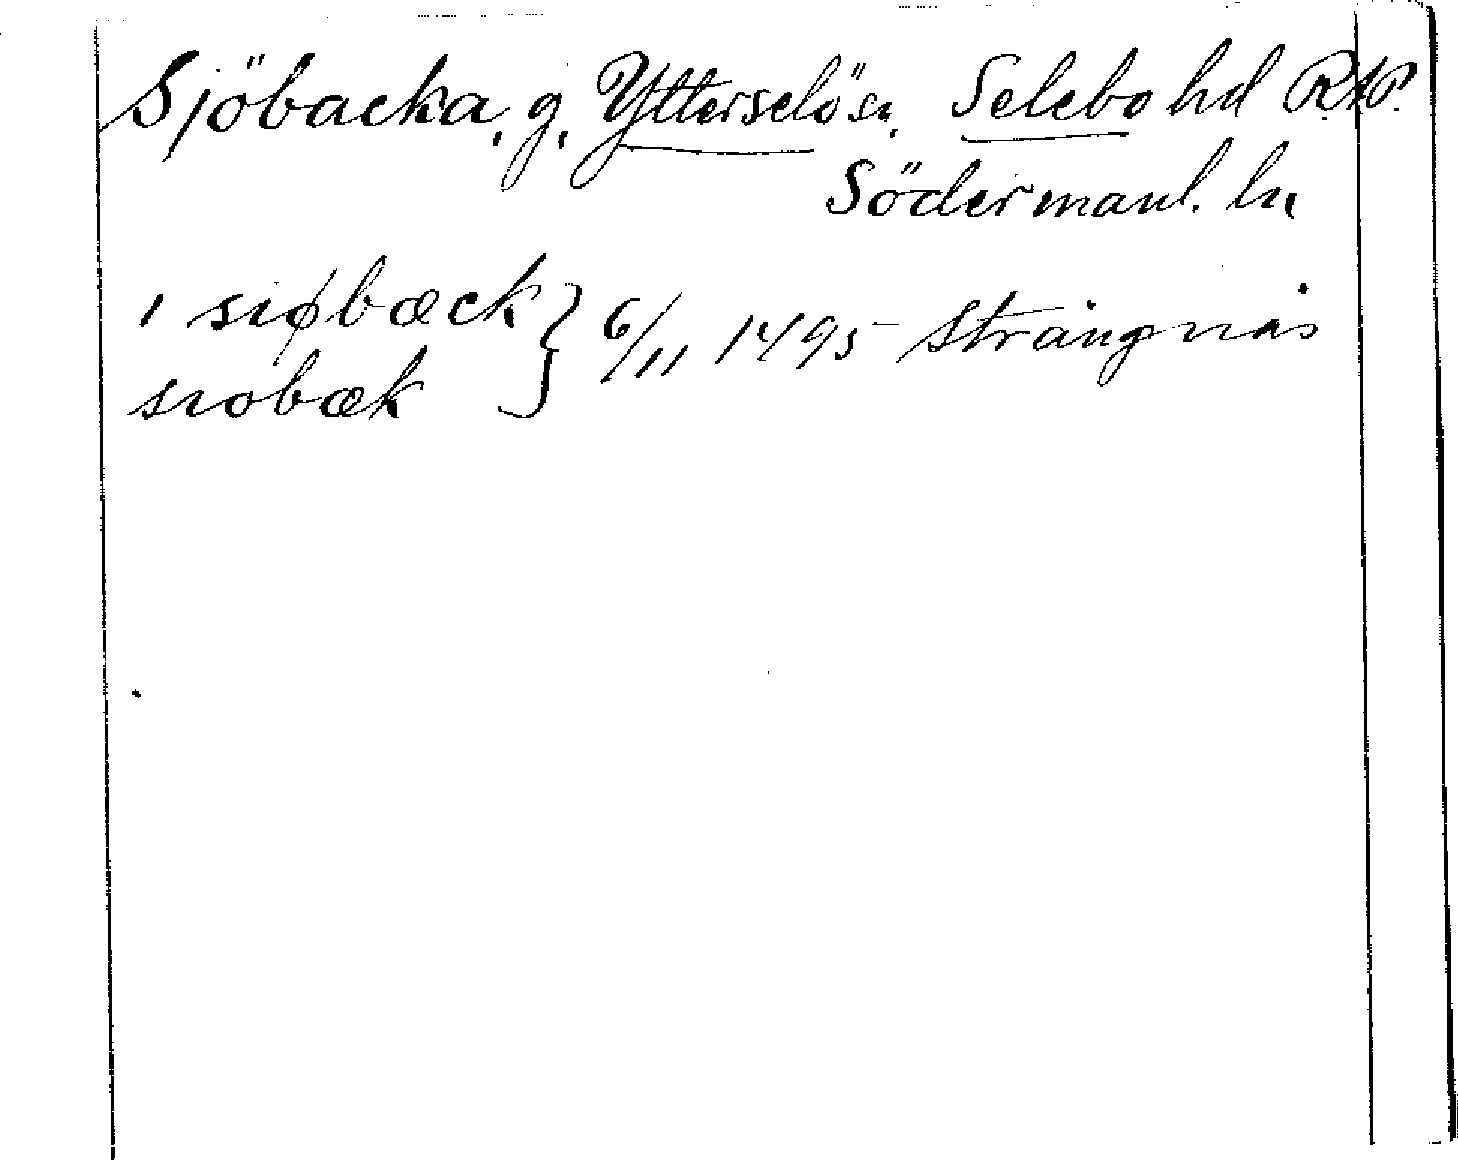 Sjöbacka, g, Ytterselö sn, Selebo hd R.A.P.
Södermanl. ln
i siøbæck } 6/11 1495 Strängnäs
siobæk